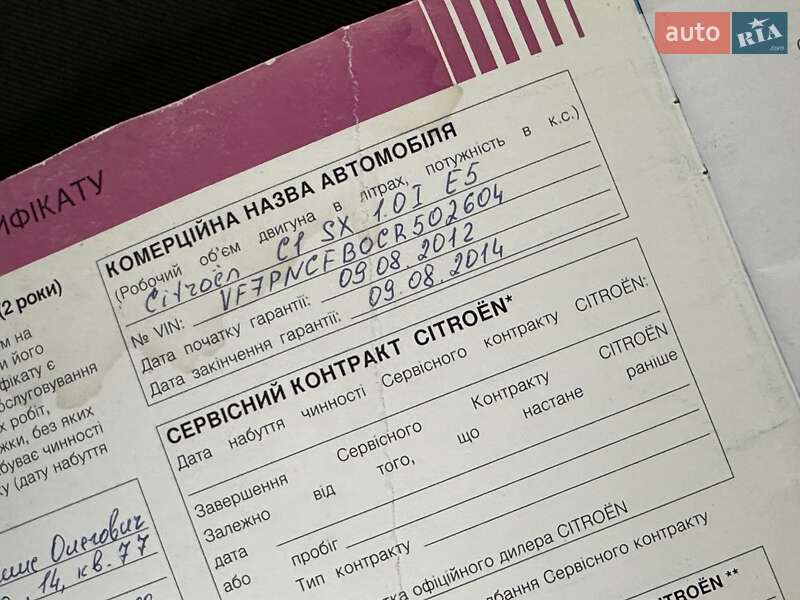 auto RIA .com
ИФІКАТУ
(2 роки)
м на
и його
фікату є
бслуговування
х робіт,
жки, без яких
буває чинності
у (дату набуття
Олегович
14, кв. 77
КОМЕРЦІЙНА НАЗВА АВТОМОБІЛЯ
(Робочий об'єм двигуна в літрах, потужність в к.с.)
Citroën C1 SX 1.0I E5
№ VIN: VF7PNCFB0CR502604
Дата початку гарантії: 09.08.2012
Дата закінчення гарантії: 09.08.2014
СЕРВІСНИЙ КОНТРАКТ CITROËN*
Дата набуття чинності Сервісного контракту CITROËN:
Завершення Сервісного Контракту CITROËN
Залежно від того, що настане раніше
дата
або пробіг
Тип контракту
тка офіційного дилера CITROËN
дбання Сервісного контракту
CITROËN **